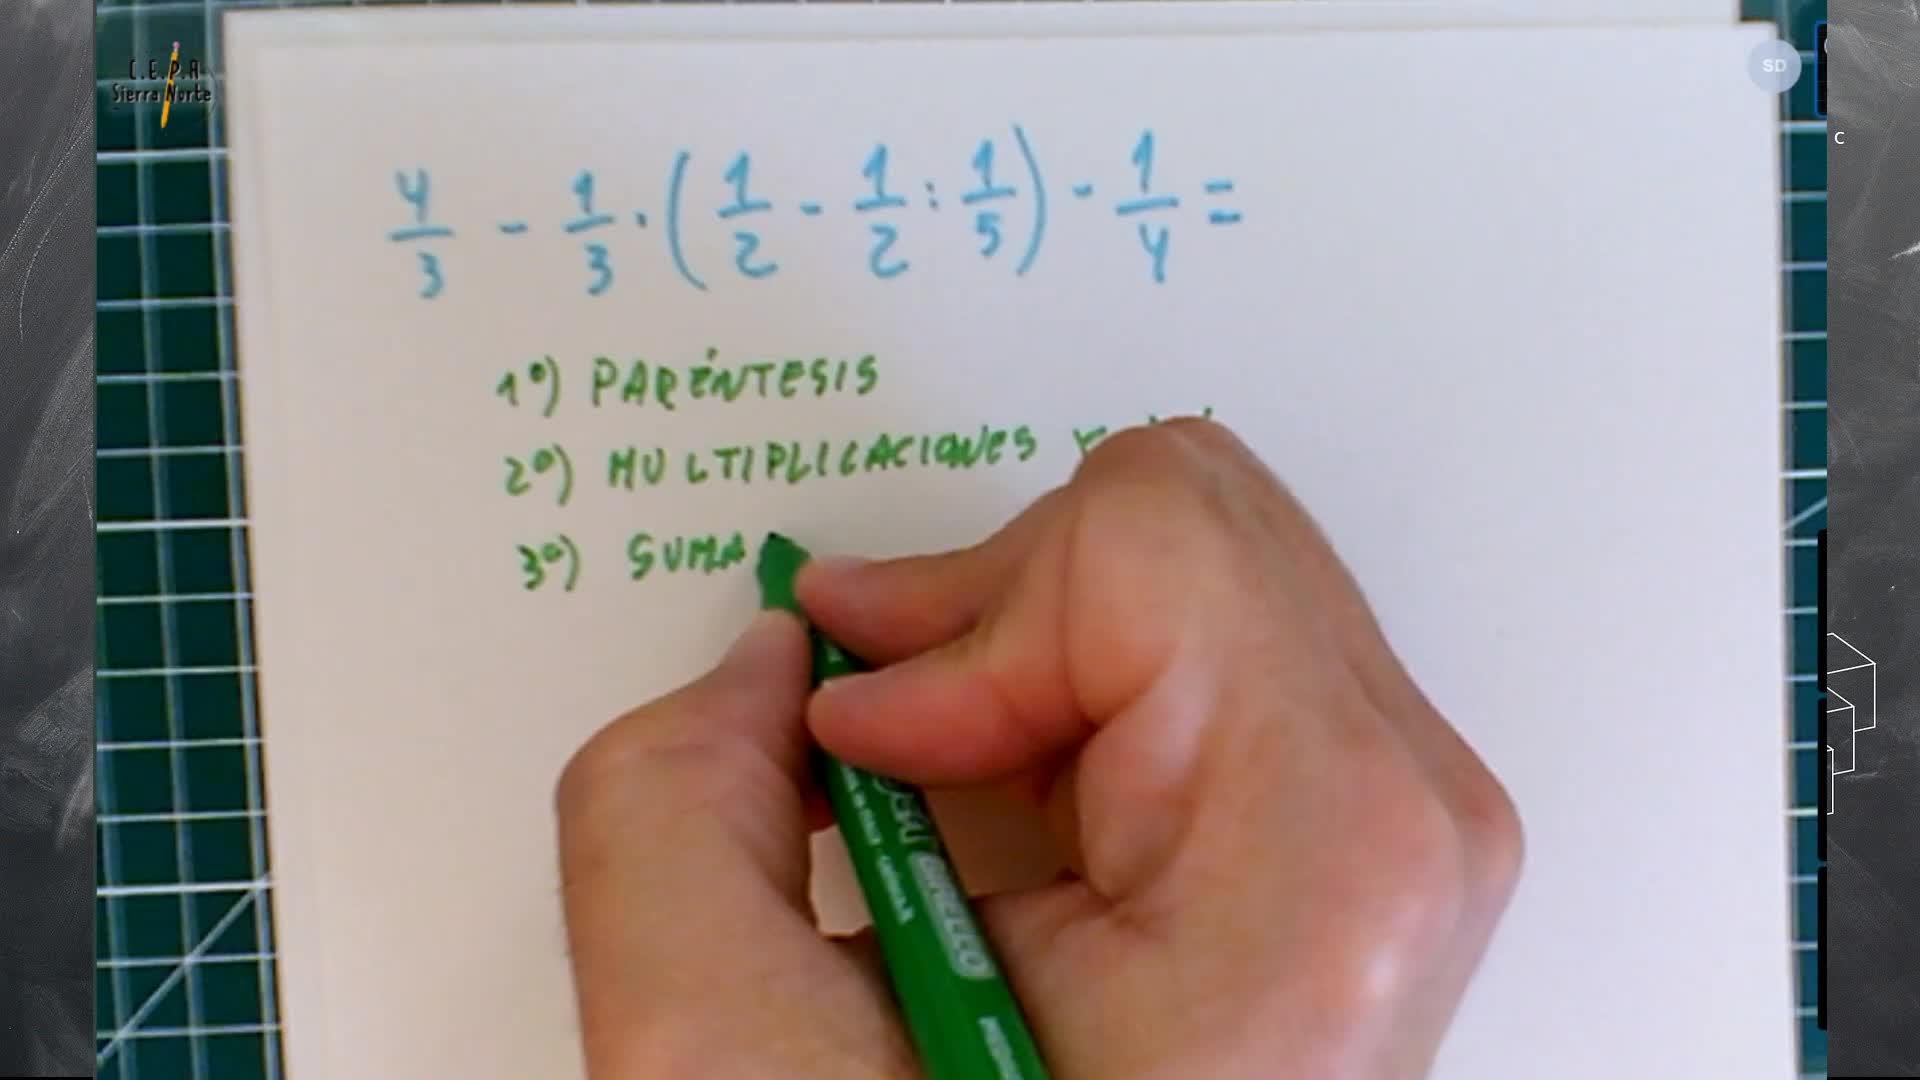 C.E.P.A
Sierra Norte
SD
C
4/3 - 1/3 · (1/2 - 1/2 : 1/5) - 1/4 =
1º) PARÉNTESIS
2º) MULTIPLICACIONES Y
3º) SUMA